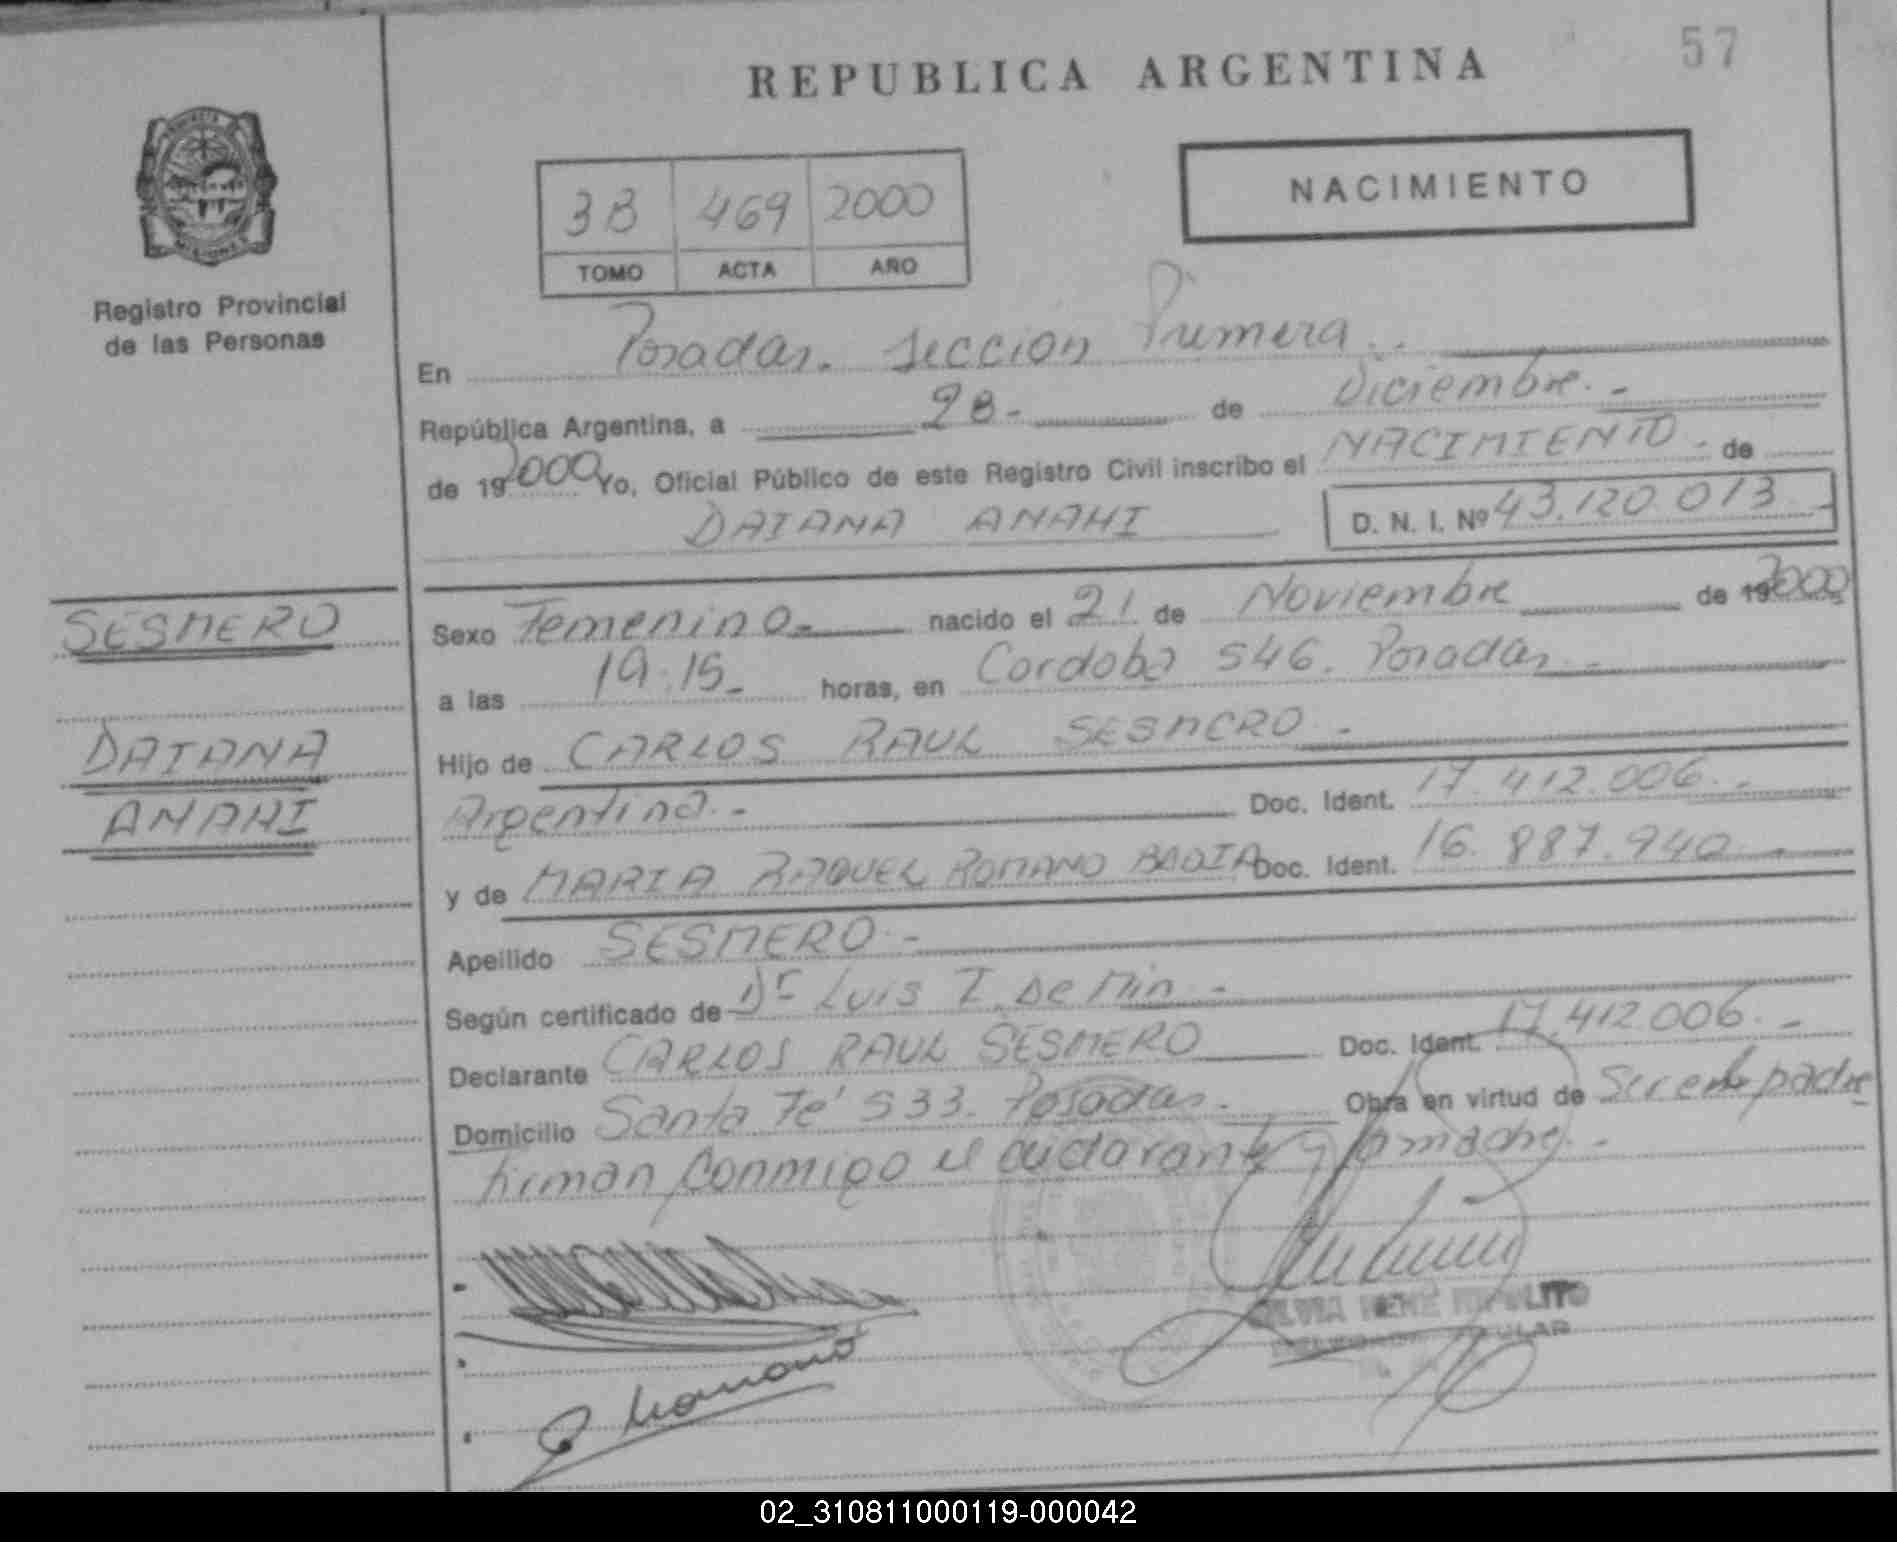 57
REPUBLICA ARGENTINA
NACIMIENTO
3B 469 2000
TOMO ACTA AÑO
Registro Provincial
de las Personas
En Posadas. Sección Primera..
República Argentina, a 28.- de Diciembre.-
de 19 2000 Yo, Oficial Público de este Registro Civil inscribo el NACIMIENTO.- de
DAIANA ANAHI D. N. I. Nº 43.120.013.-
SESMERO
DAIANA
ANAHI
Sexo Femenino.- nacido el 21 de Noviembre de 19 2000
a las 19:15.- horas, en Cordoba 546. Posadas.-
Hijo de CARLOS RAUL SESMERO.-
Argentina.- Doc. Ident. 17.412.006.-
y de MARIA RAQUEL ROMANO BADIA Doc. Ident. 16.887.940.-
Apellido SESMERO.-
Según certificado de Dr Luis I. De Min.-
Declarante CARLOS RAUL SESMERO Doc. Ident. 17.412.006.-
Domicilio Santa Fé 533. Posadas.- Obra en virtud de Ser el padre
firman conmigo el declarante y la madre.-
RENÉ HIPOLITO
TITULAR
02_310811000119-000042